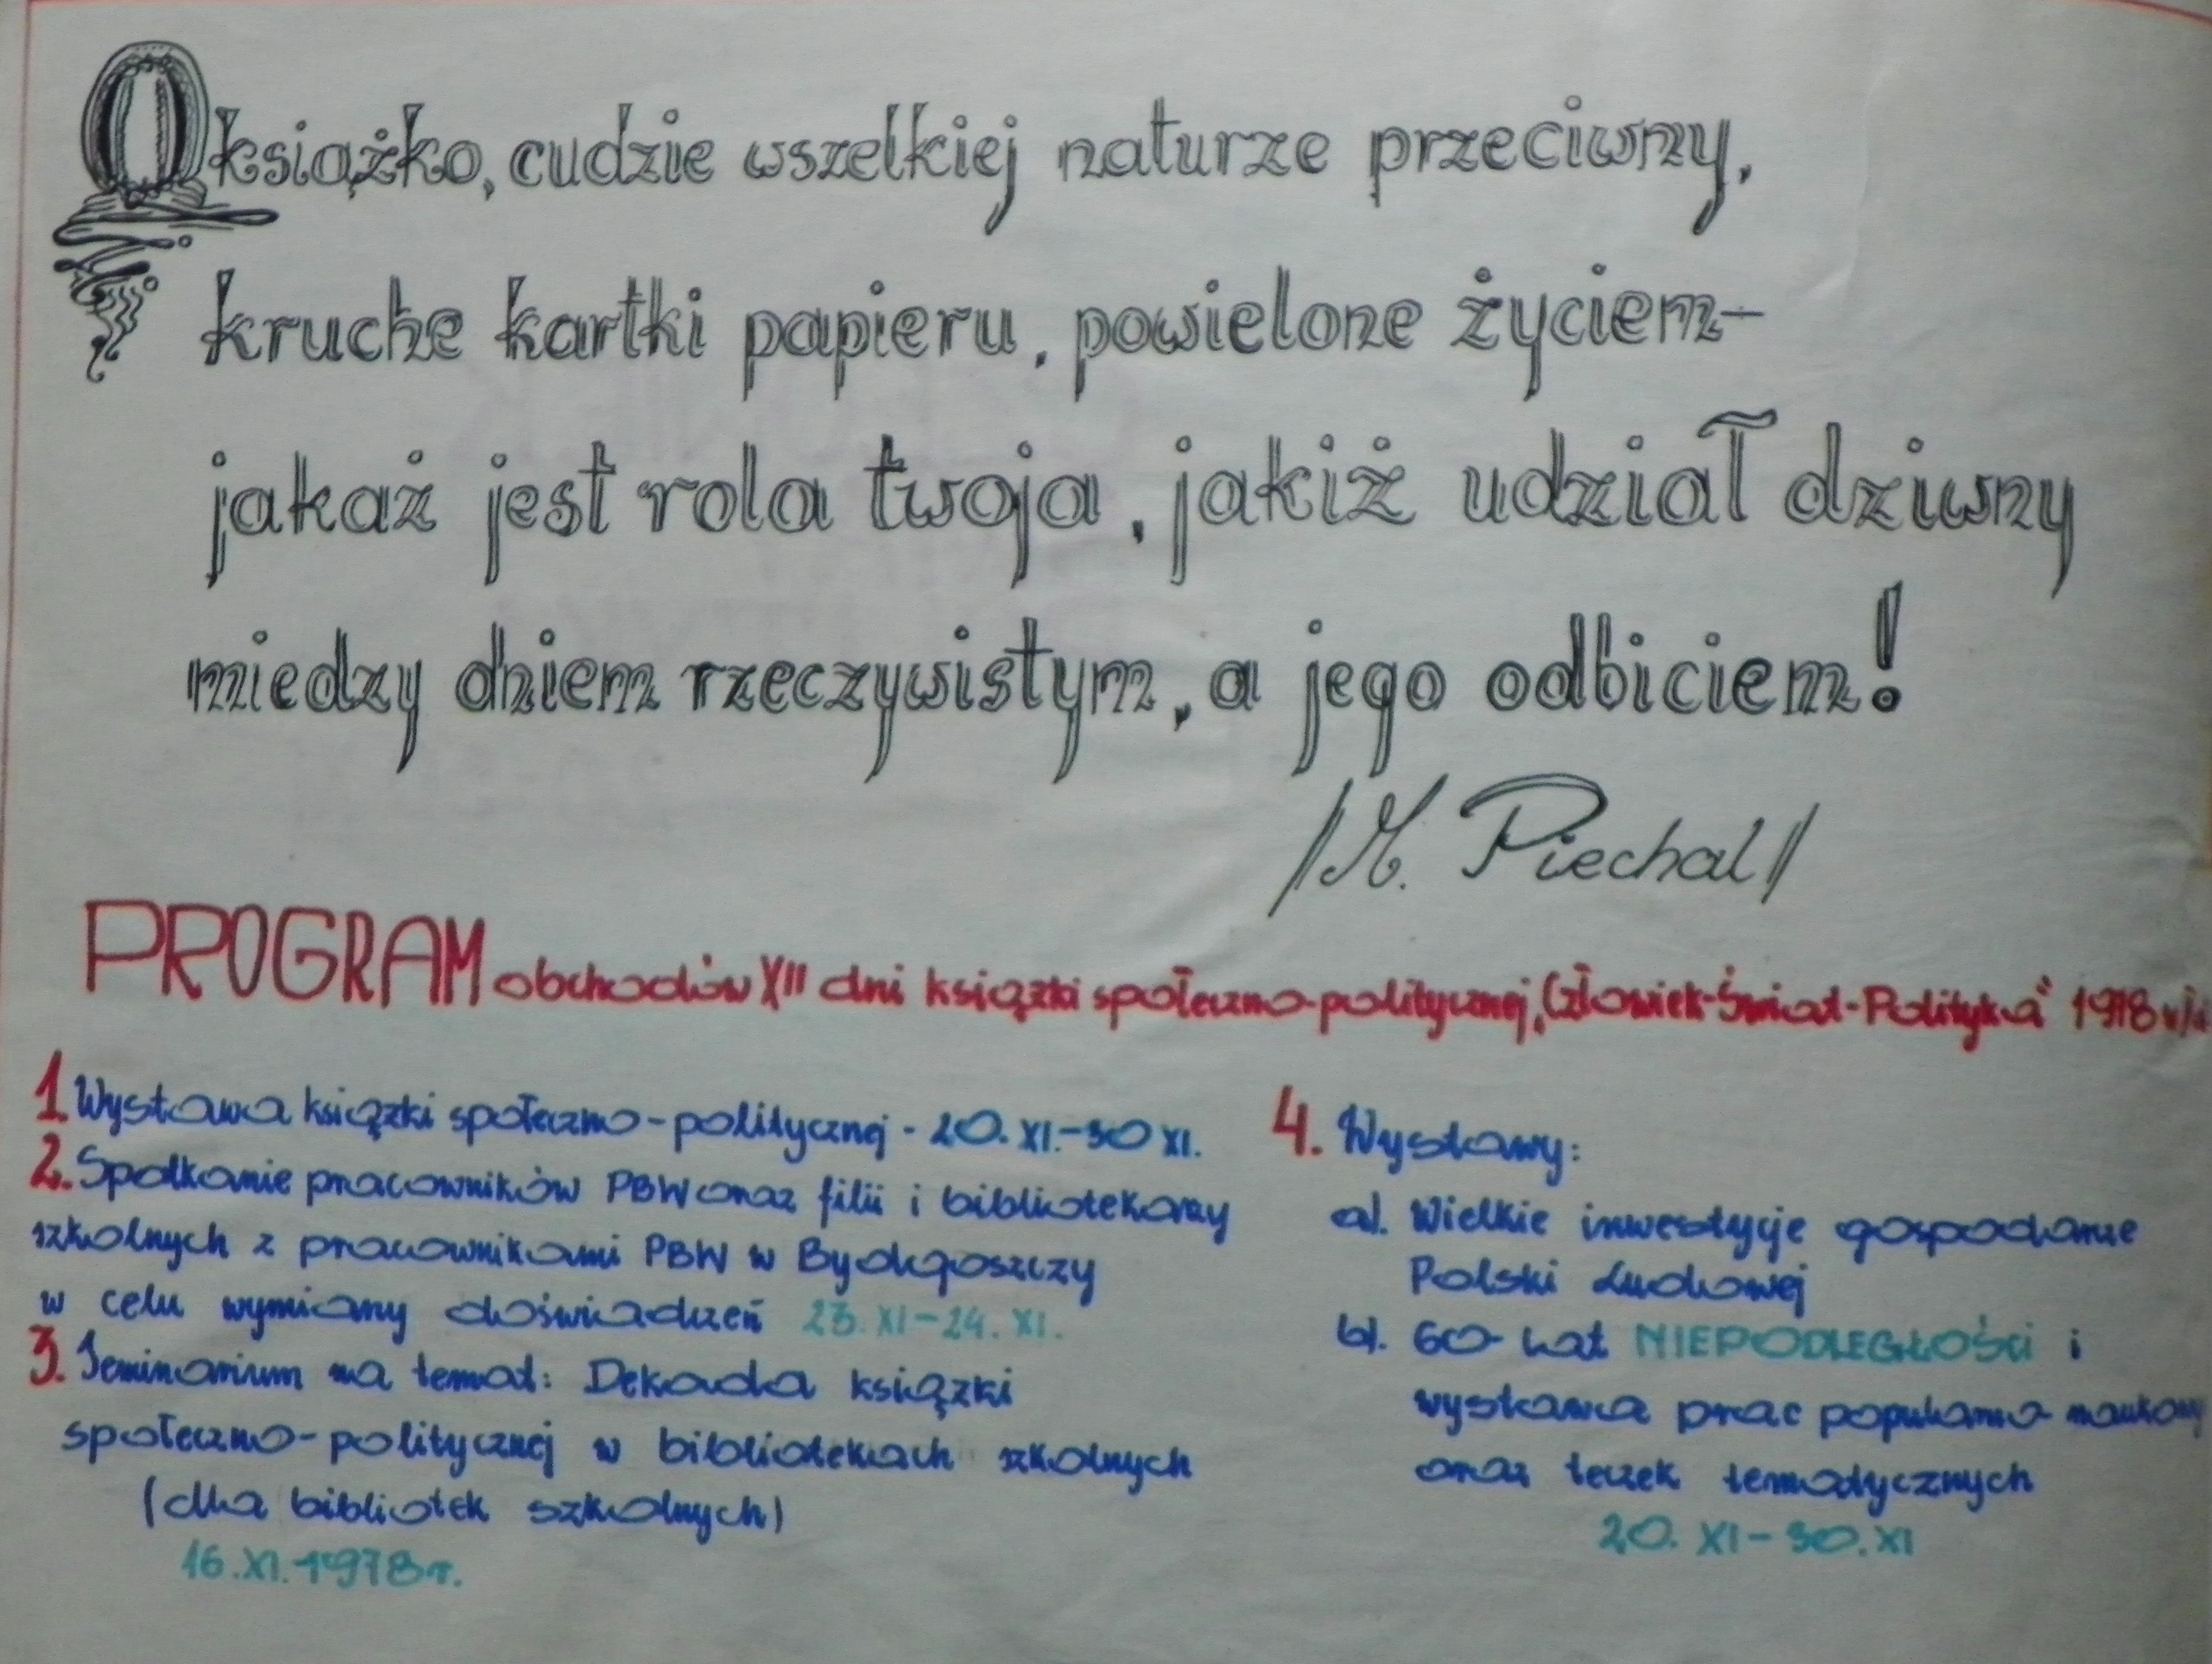 O książko, cudzie wszelkiej naturze przeciwny,
kruche kartki papieru, powielone życiem-
jakaż jest rola twoja, jakiż udział dziwny
miedzy dniem rzeczywistym, a jego odbiciem!
/M. Piechal/
PROGRAM obchodów XII dni książki społeczno-politycznej „Człowiek-Świat-Polityka" 1978
1. Wystawa książki społeczno-politycznej - 20. XI.-30 XI.
2. Spotkanie pracowników PBW oraz filii i bibliotekarzy
szkolnych z pracownikami PBW w Bydgoszczy
w celu wymiany doświadczeń 23. XI-24. XI.
3. Seminarium na temat: Dekada książki
społeczno-politycznej w bibliotekach szkolnych
(dla bibliotek szkolnych)
16.XI.1978r.
4. Wystawy:
a). Wielkie inwestycje gospodarcze
Polski Ludowej
b). 60-lat NIEPODLEGŁOŚCI i
wystawa prac popularno-naukowy
oraz teczek tematycznych
20. XI-30.XI